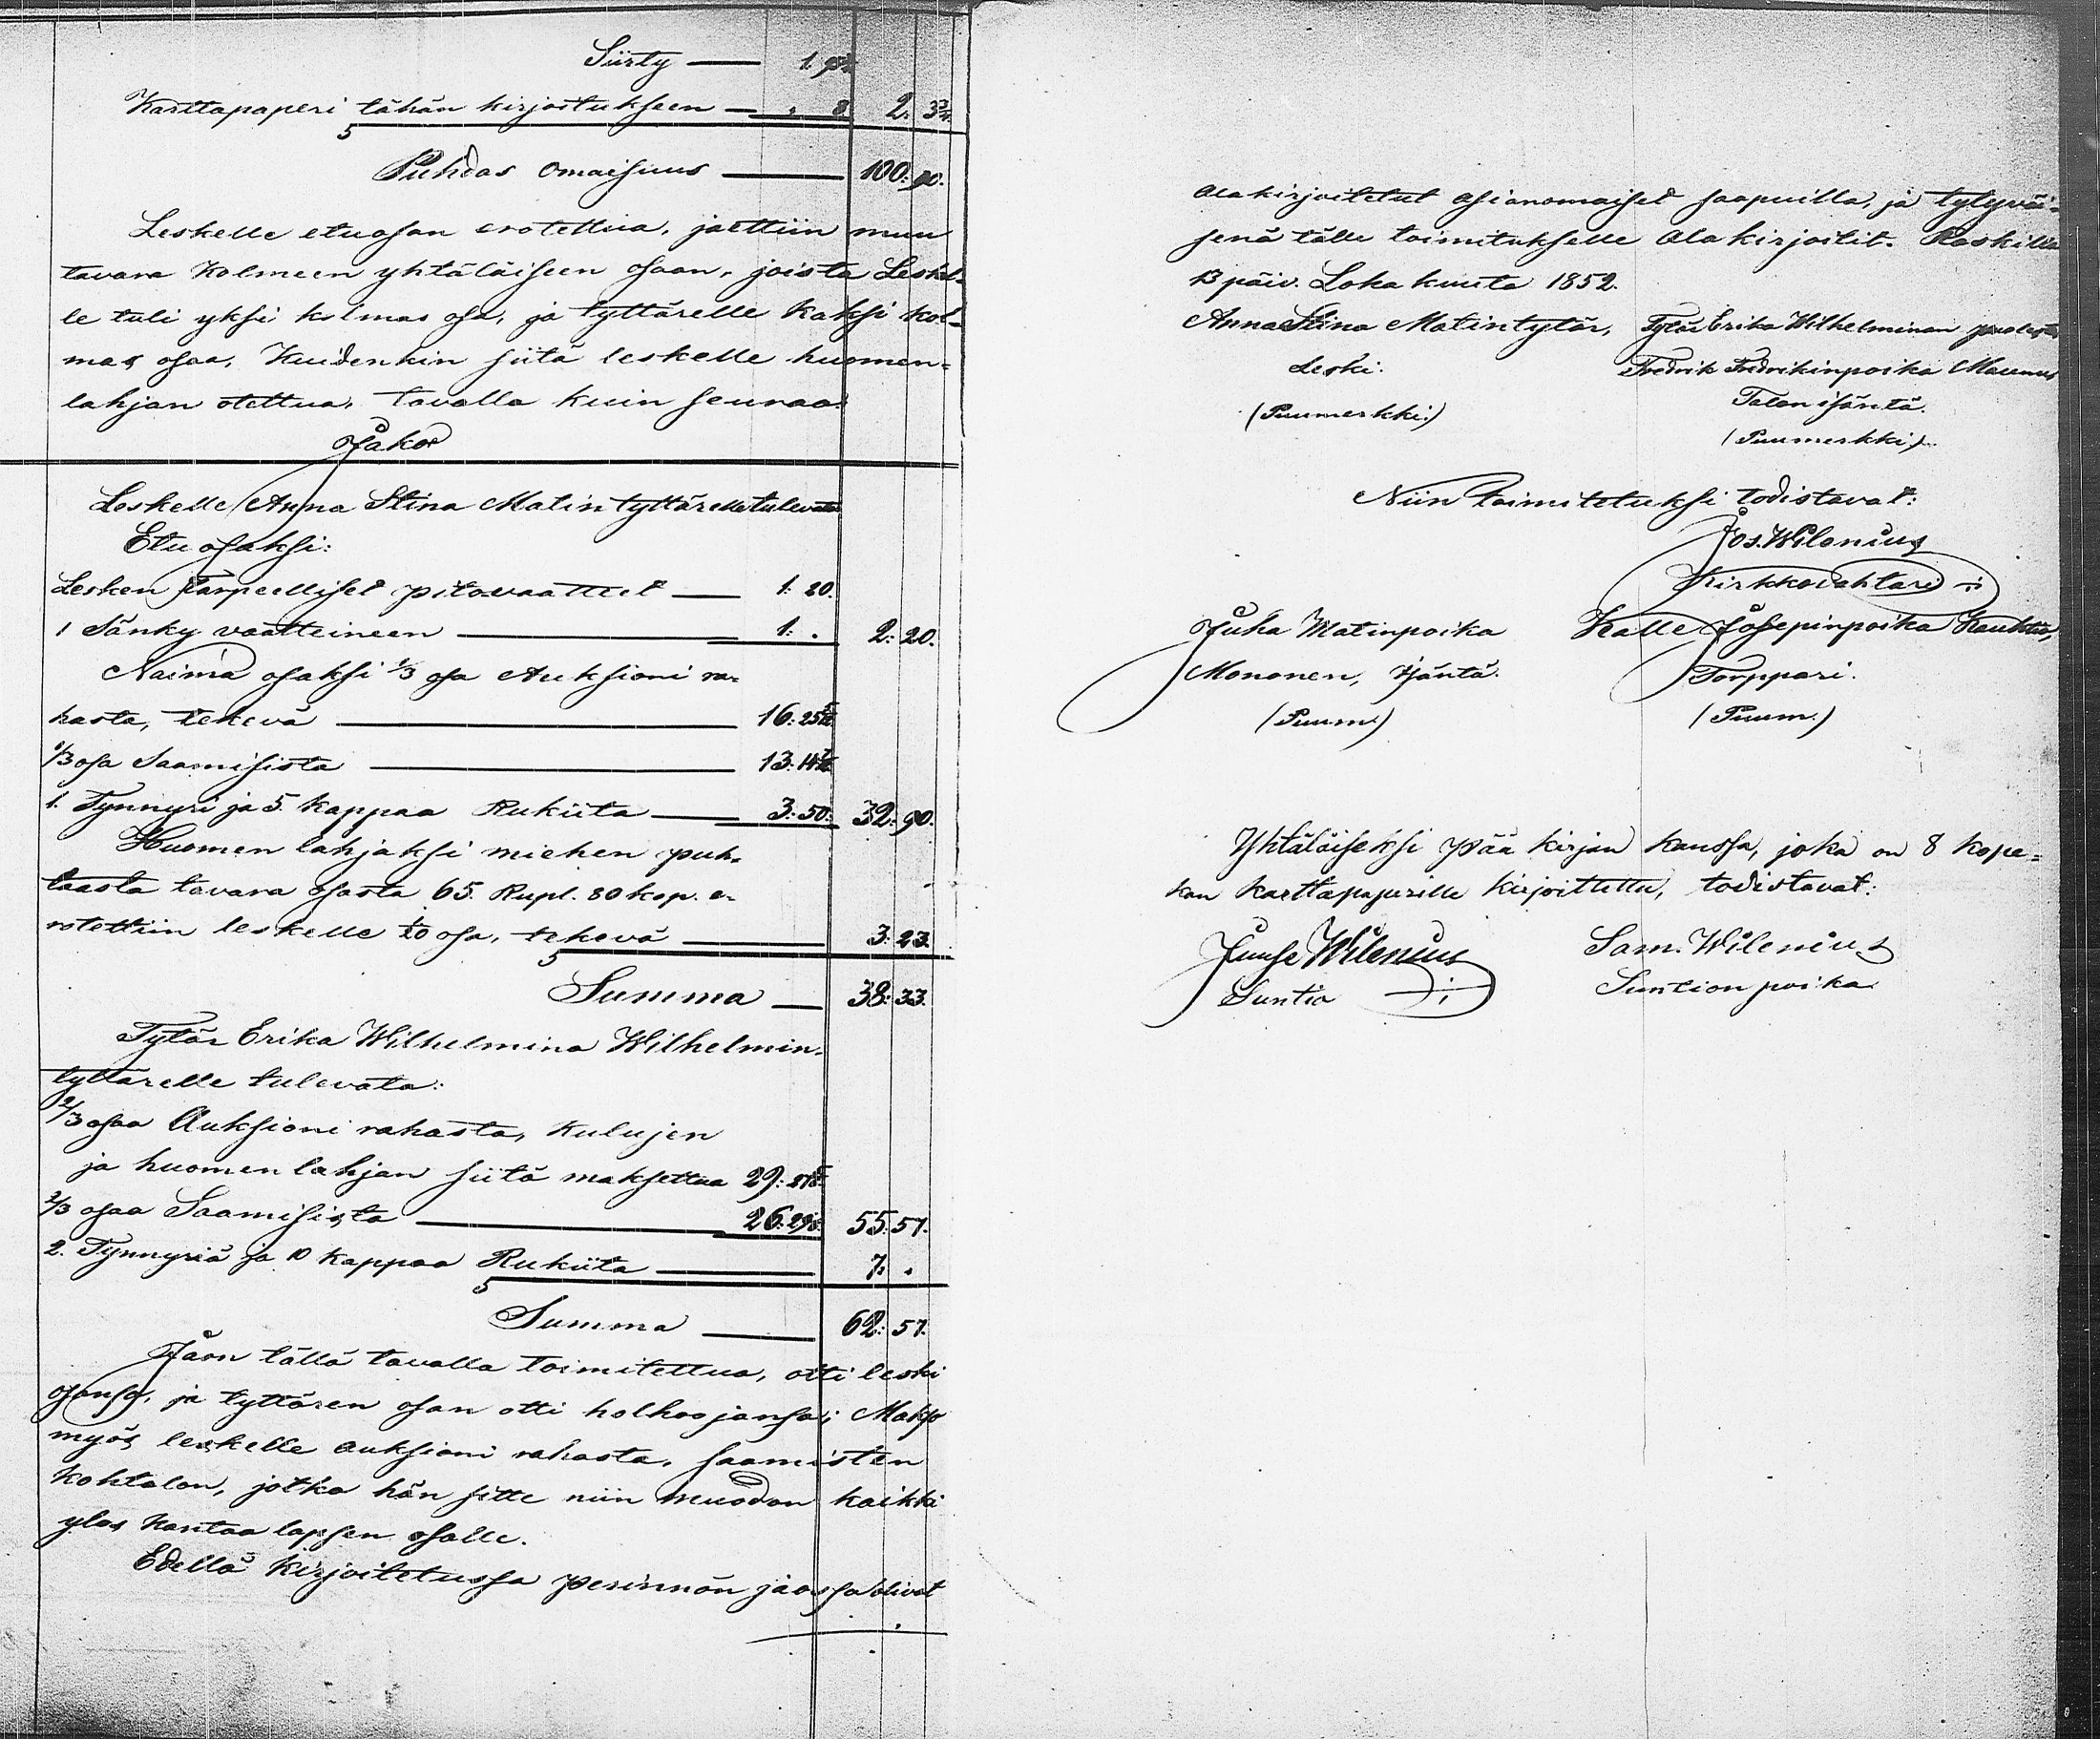 Siirty — 1.
Karttapaperi tähän kirjoitukseen — „ 8. 2. 3¾.
Puhdas omaisuus — 100: 90.
Leskelle etuosan erotettua, jaettiin muu
tavara kolmeen yhtäläiseen osaan, joista Leskel-
le tuli yksi kolmas osa, ja tyttärelle kaksi kol-
mas osaa, Kuidenkin siitä leskelle huomen-
lahjan otettua, tavalla kuin seuraa:
Jako
Leskelle Anna Stina Matintyttärelle tulevata
Etu osaksi:
Lesken tarpeelliset pitovaatteet — 1: 20.
1 Sänky vaatteineen — 1: . 2: 20.
Naima osaksi 1/3 osa Auksioni ra-
hasta, tekevä — 16: 25
1/3 osa Saamisista — 13: 14
1. Tynnyri ja 5 kappaa Rukiita — 3: 50: 32: 90.
Huomen lahjaksi miehen puh-
taasta tavara osasta 65. Rupl. 80 kop. e-
rotettiin leskelle osa, tekevä — 3: 23.
Summa — 38: 33.
Tytär Erika Wilhelmina Wilhelmin-
tyttärelle tulevata:
2/3 osaa Auksioni rahasta, kulujen
ja huomen lahjan siitä maksettua 29:
2/3 osaa Saamisista — 26: 55: 57.
2. Tynnyriä ja 10 kappaa Rukiita — 7: .
Summa — 62: 57.
Jaon tällä tavalla toimitettua, otti leski
osansa, ja tyttären osan otti holhoojansa; Makso
myös leskelle auksioni rahasta, saamisten
kohtalon, jotka hän sitte niin muodon kaikki
ylös kantaa lapsen osalle.
Edellä kirjoitetussa perinnön jaossa olivat
alakirjoitetut asianomaiset saapuilla, ja tytyväi-
senä tälle toimitukselle alakirjoitit. Koskilla
13 päiv. Loka kuuta 1852.
Anna Stina Matintytär, Tytär Erika Wilhelminan puolesta
Leski. Fredrik Fredrikinpoika Maunus
(Puumerkki.) Talon isäntä.
(Puumerkki).
Niin toimitetuksi todistavat:
Jos. Wilenius
Kirkkovahtari
Juha Matinpoika Kalle Josepinpoika
Mononen, isäntä. Torppari.
(Puum.) (Puum.)
Yhtäläiseksi Pää kirjan kanssa, joka on 8 kope-
kan karttapaperille kirjoitettu, todistavat:
Juuse Wilenius Sam. Wilenius
Suntio Suntion poika.